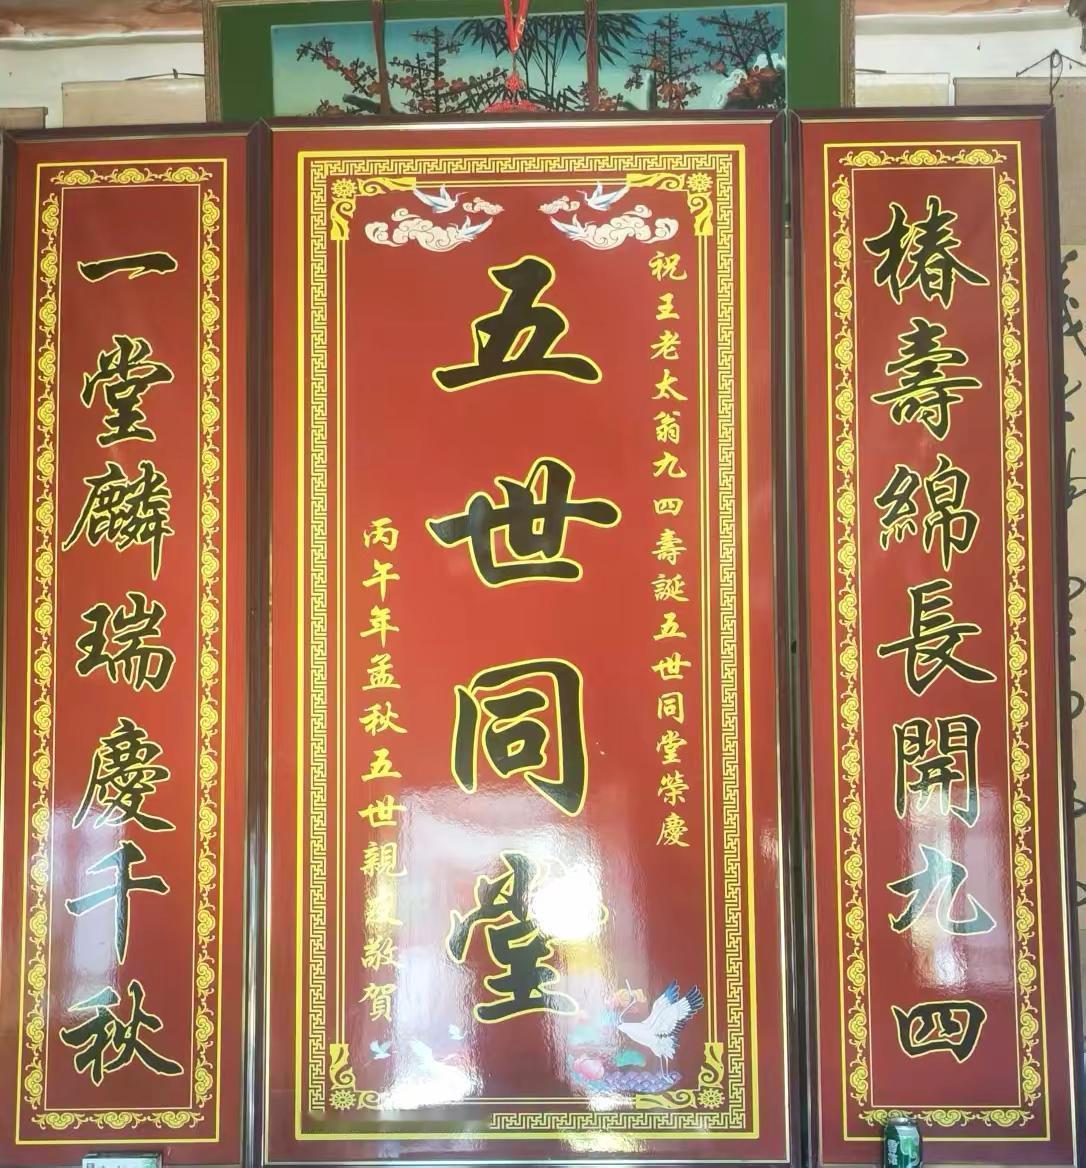 椿壽綿長開九四
祝王老太翁九四壽誕五世同堂榮慶
五世同堂
丙午年孟秋五世親友敬賀
一堂麟瑞慶千秋